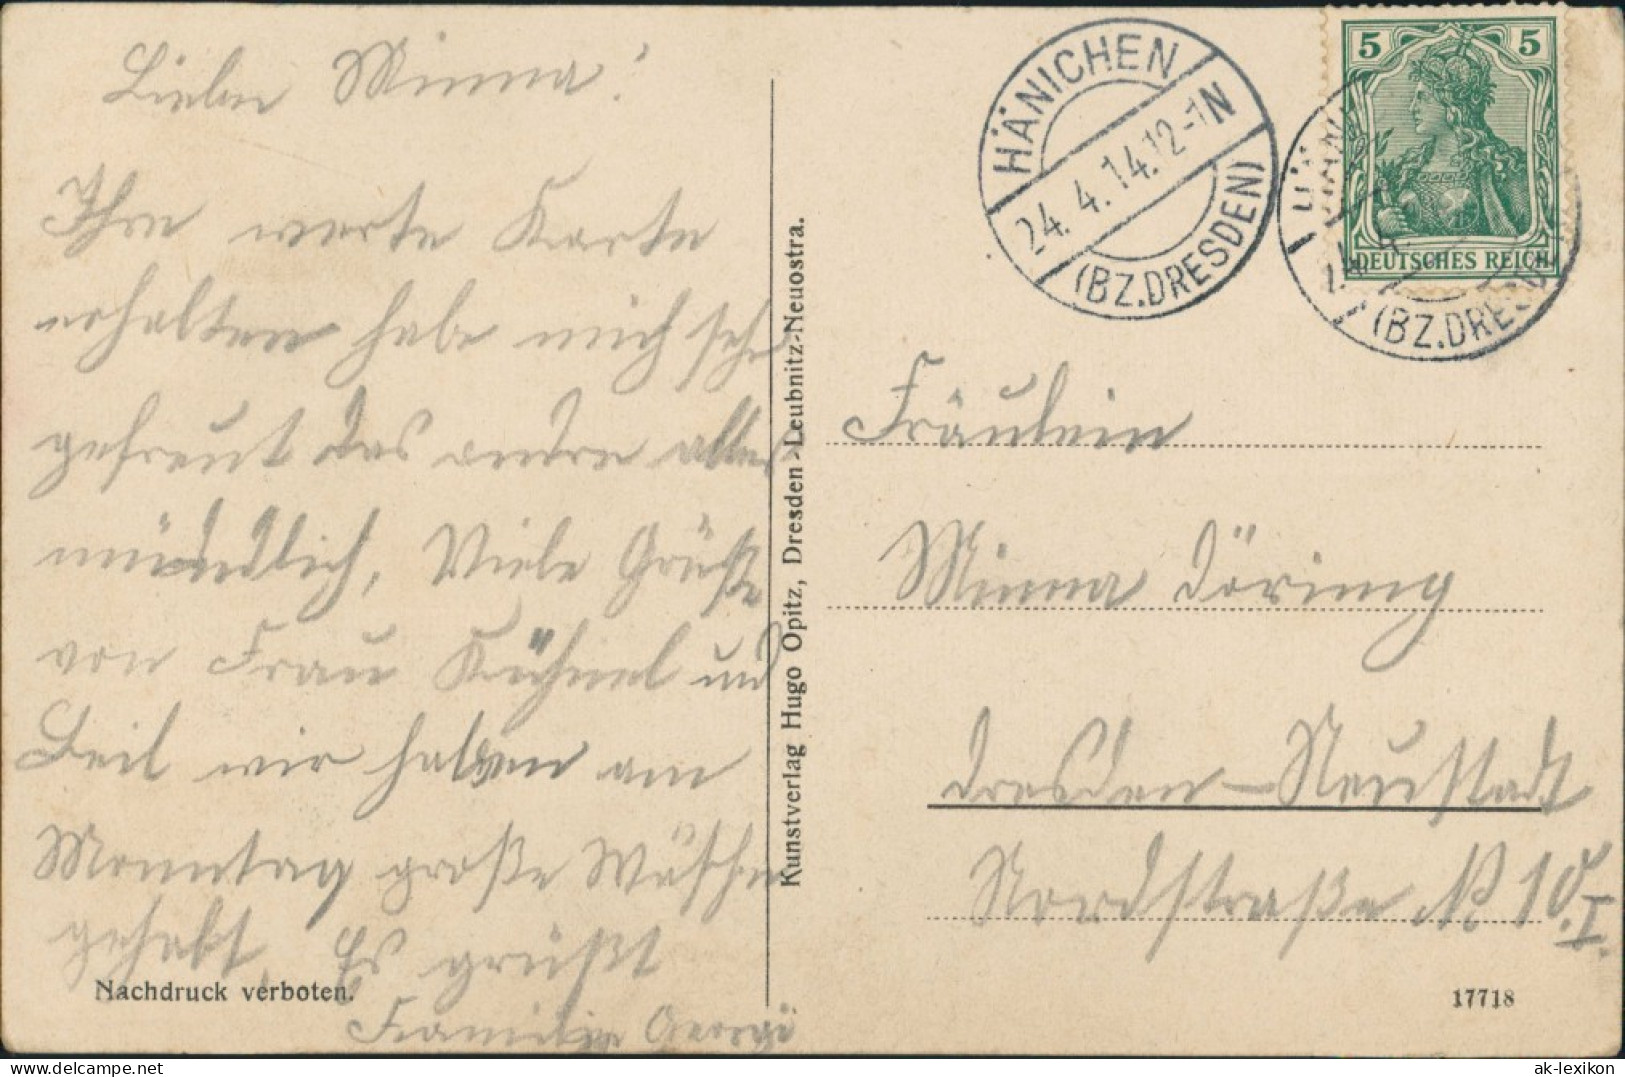 Liebe Minna!
Ihre werte Karte
erhalten habe mich sehr
gefreut das andre alles
mündlich, Viele Grüße
von Frau Kühnel und
Beil wir haben am
Monntag große Wäsche
gehabt. Es grüßt
Familie Georgi
Nachdruck verboten.
Kunstverlag Hugo Opitz, Dresden-Leubnitz-Neuostra.
HÄNICHEN
24.4.14.12-1N
(BZ.DRESDEN)
HÄNI
(BZ.DRESD
5 5
DEUTSCHES REICH
Fräulein
Minna Döring
Dresden-Neustadt
Nordstraße No 10. I.
17718
ak-ansichtskarten.de
ak-lexikon